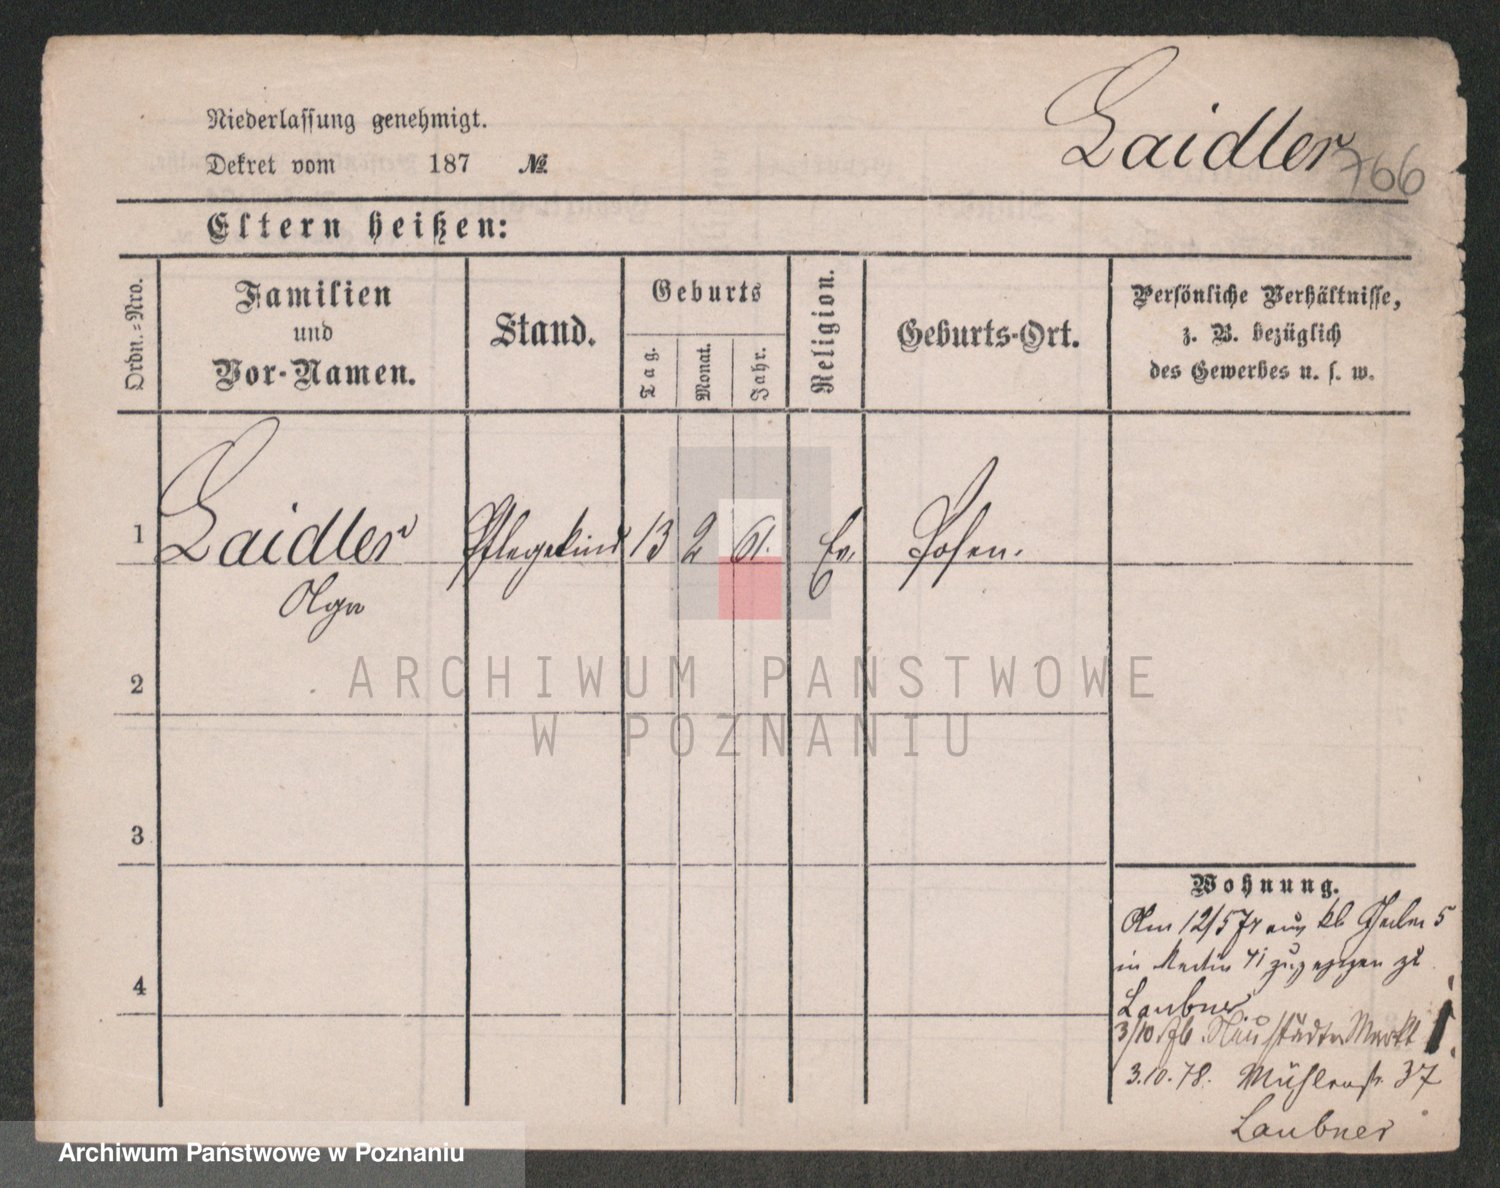 Niederlassung genehmigt.
Laidler
766
Dekret vom 187 №
Eltern heißen:
Ordn.=Nro.
Familien
und
Vor-Namen.
Stand.
Geburts
Tag.
Monat.
Jahr.
Religion.
Geburts-Ort.
Persönliche Verhältnisse,
z. B. bezüglich
des Gewerbes u. s. w.
1 Laidler Pflegekind 13 2 61. Ev. Posen.
Olga
2
ARCHIWUM PAŃSTWOWE
W POZNANIU
3
Wohnung.
Am 12/5 aus kl. 5
in Martin zugezogen zu
4
Laubner
3/10 Neustädter Markt
3.10.78. Mühlenstr 37
Laubner
Archiwum Państwowe w Poznaniu